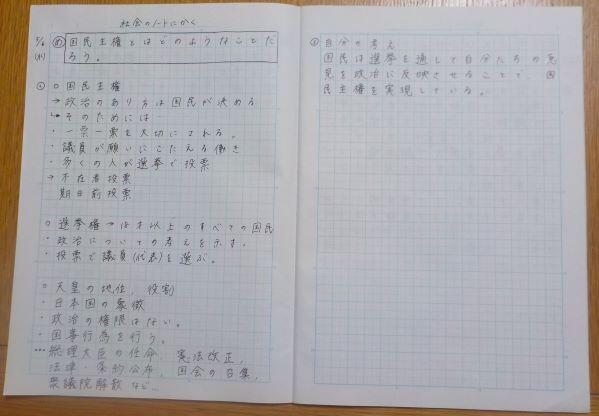 社会のノートにかく
5/6 (水)
め 国民主権とはどのようなことだ
ろう。
○国民主権
→政治のあり方は国民が決める
↳そのためには
・一票一票を大切にされる。
・議員が願いにこたえる働き
・多くの人が選挙で投票
→不在者投票
期日前投票
○選挙権→18才以上のすべての国民
・政治についての考えを示す。
・投票で議員(代表)を選ぶ。
○天皇の地位、役割
・日本国の象徴
・政治の権限はない。
・国事行為を行う。
…総理大臣の任命、憲法改正、
法律・条約公布、国会の召集、
衆議院解散など…
自分の考え
国民は選挙を通して自分たちの意
見を政治に反映させることで、国
民主権を実現している。